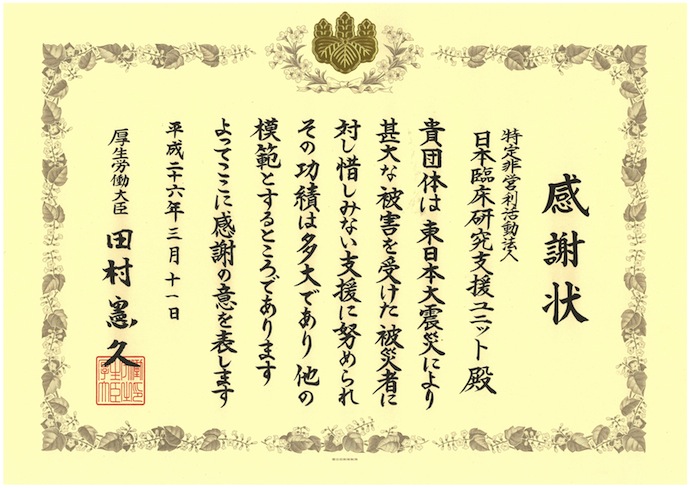 感謝状
特定非営利活動法人
日本臨床研究支援ユニット 殿
貴団体は東日本大震災により
甚大な被害を受けた被災者に
対し惜しみない支援に努められ
その功績は多大であり他の
模範とするところであります
よってここに感謝の意を表します
平成二十六年三月十一日
厚生労働大臣 田村憲久